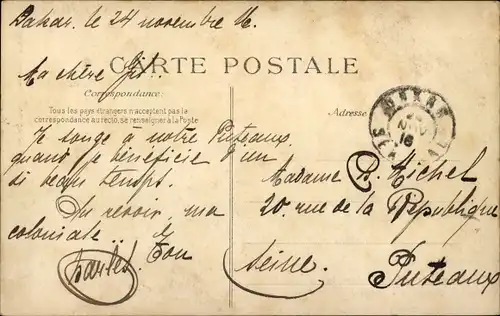 Dakar. le 24 novembre 16.
CARTE POSTALE
Ma chère
Correspondance
Tous les pays étrangers n'acceptent pas la
correspondance au recto, se renseigner à la Poste
Je songe à notre Puteaux
quand je bénéficie d'un
si beau temps.
Au revoir, ma
coloniale
Ton
Charles.
Adresse
DAKAR
NOV
16
SENEGAL
Madame Michel
20. rue de la République
Puteaux
Seine.